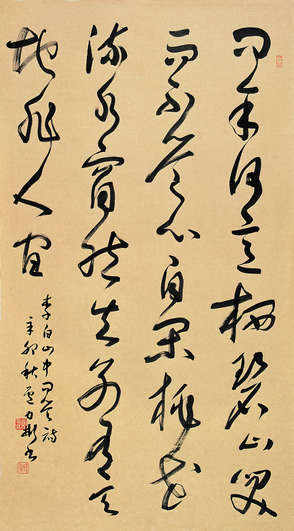 問余何意栖碧山笑
而不答心自閑桃花
流水窅然去別有天
地非人間
李白山中問答詩
辛卯秋